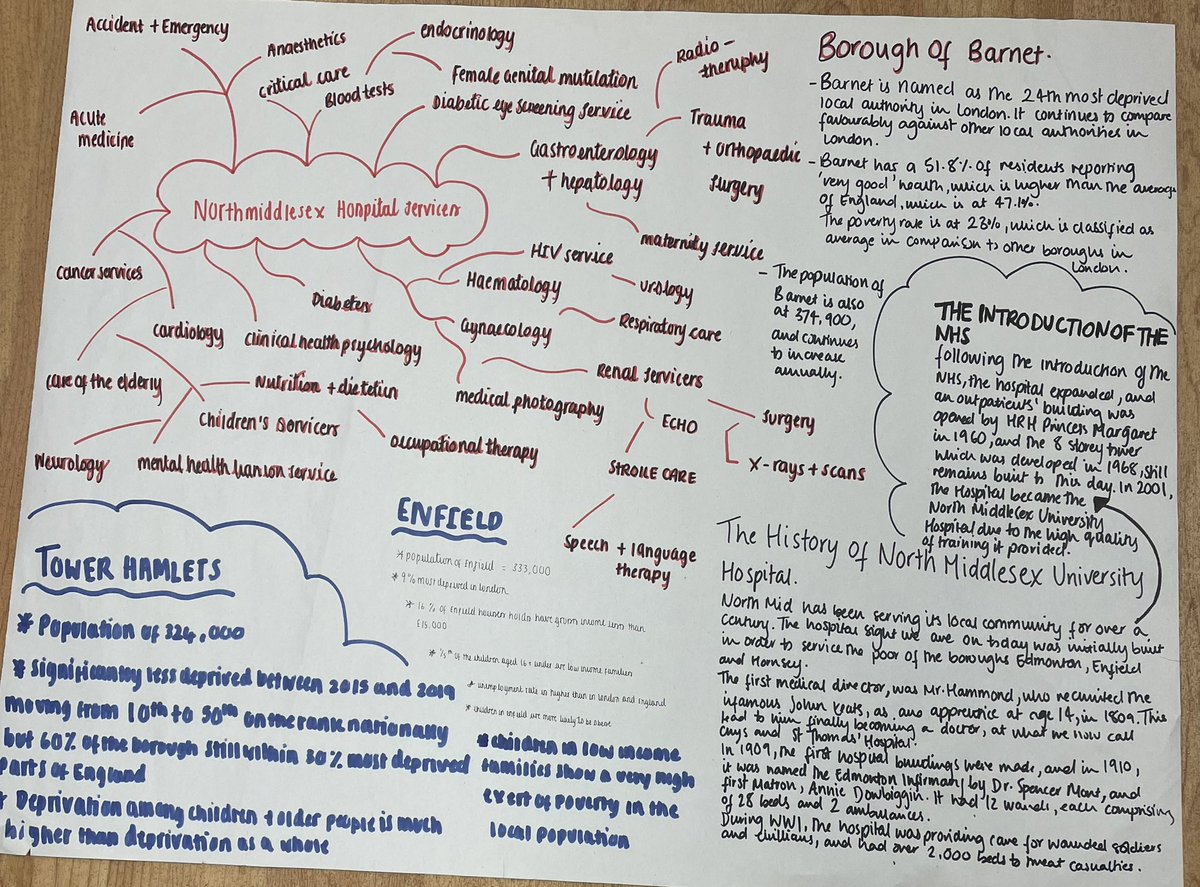 Accident + Emergency
Anaesthetics
critical care
Blood tests
endocrinology
Female genital mutilation
Diabetic eye screening service
Acute
medicine
Gastroenterology
+ hepatology
Radio-
theruphy
Trauma
+ orthopaedic
surgery
maternity service
Northmiddlesex Hospital services
cancer services
cardiology
Diabetes
clinical health psychology
HIV service
Haematology
urology
Gynaecology
Respiratory care
Renal servicers
medical photography
ECHO
surgery
X-rays + scans
STROKE CARE
Speech + language
therapy
care of the elderly
Nutrition + dietetien
Children's servicers
occupational therapy
Neurology
mental health liason service
Borough Of Barnet.
- Barnet is named as the 24th most deprived
local authority in London. It continues to compare
favourably against other local authorities in
London.
- Barnet has a 51.8% of residents reporting
'very good' health, which is higher than the average
of England, which is at 47.1%.
The poverty rate is at 23%, which is classified as
average in comparison to other boroughs in
London.
- The population of
Barnet is also
at 374,900,
and continues
to increase
annually.
THE INTRODUCTION OF THE
NHS
following the introduction of the
NHS, the hospital expanded, and
an outpatients' building was
opened by HRH Princess Margaret
in 1960, and the 8 storey tower
which was developed in 1968, still
remains built to this day. In 2001,
the Hospital became the
North Middlesex University
Hospital due to the high quality
of training it provided.
The History of North Middlesex University
Hospital.
North Mid has been serving its local community for over a
century. The hospital sight we are on today was initially built
in order to service the poor of the boroughs Edmonton, Enfield
and Hornsey.
The first medical director, was Mr. Hammond, who recruited the
infamous John Keats, as an apprentice at age 14, in 1809. This
lead to him finally becoming a doctor, at what we now call
Guys and St Thomas' Hospital.
In 1909, the first hospital buildings were made, and in 1910,
it was named the Edmonton Infirmary by Dr. Spencer Mort, and
first Matron, Annie Dowbiggin. It had 12 wards, each comprising
of 28 beds and 2 ambulances.
During WW1, the hospital was providing care for wounded soldiers
and civilians, and had over 2,000 beds to treat casualties.
TOWER HAMLETS
* Population of 324,000
* Significantly less deprived between 2015 and 2019
moving from 10th to 50th on the rank nationally
but 60% of the borough still within 30% most deprived
parts of England
* Deprivation among children + older people is much
higher than deprivation as a whole
ENFIELD
* population of Enfield = 333,000
* 9% most deprived in london
* 16% of Enfield households have gross income less than
£15,000
* 1/5th of the children aged 16 + under are low income families
* unemployment rate is higher than in london and england
* children in enfield are more likely to be obese
* children in low income
families show a very high
extent of poverty in the
local population